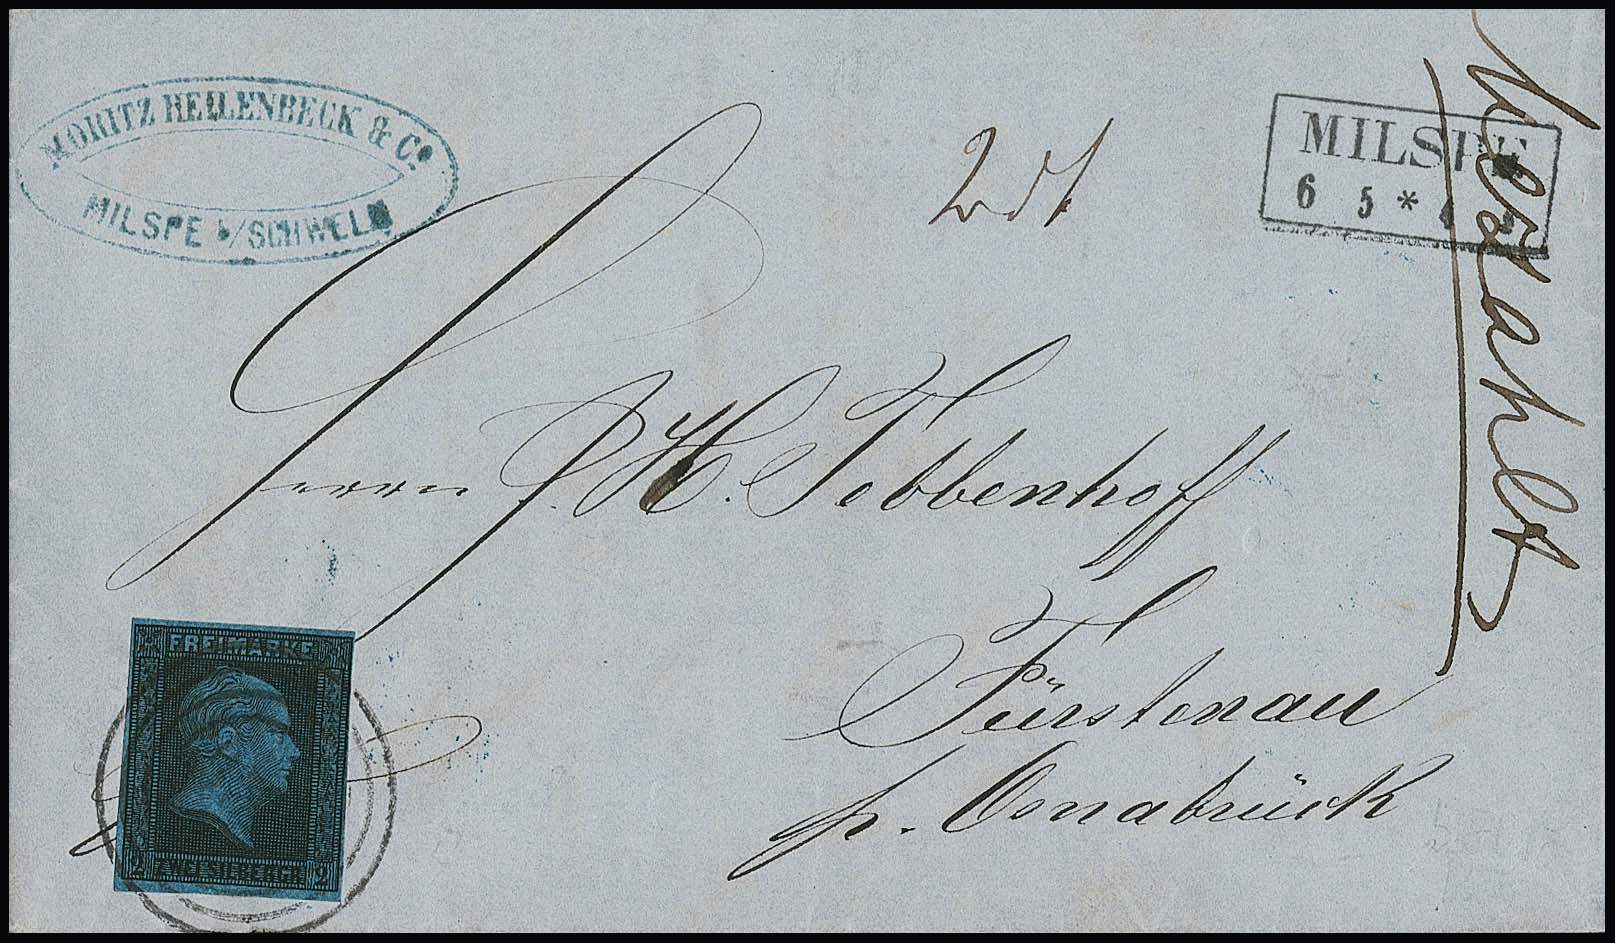 MORITZ HEILENBECK & Co.
MILSPE b/SCHWELM
MILSPE
6 5 *
Herrn J. H. Tebbenhoff
Fürstenau
p. Osnabrück
FREIMARKE
2 ZWEI SILBERGR. 2